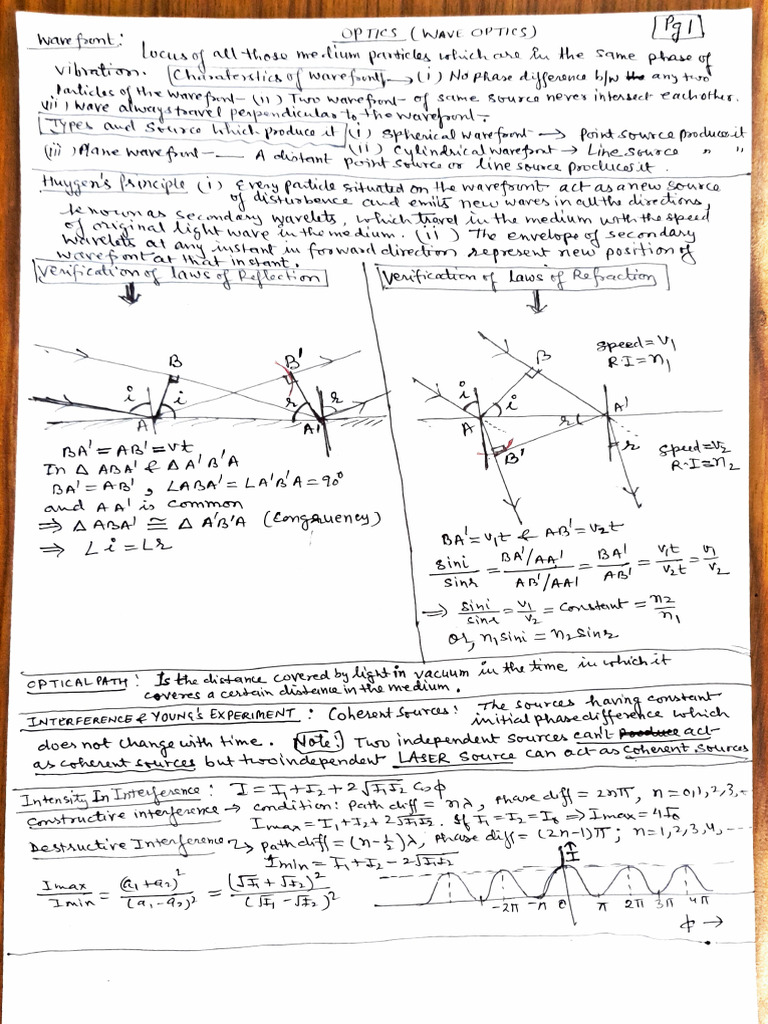 OPTICS (WAVE OPTICS)
Pg 1
Wavefront: Locus of all those medium particles which are in the same phase of
vibration. Charaterstics of wavefront → (i) No phase difference b/w any two
particles of the wavefront - (ii) Two wavefront of same source never intersect each other.
(iii) Wave always travel perpendicular to the wavefront.
Types and source which produce it (i) Spherical wavefront → Point source produces it
(iii) Plane wavefront - A distant (ii) Cylindrical wavefront → Line source " "
point source or line source produces it.
Huygen's Principle (i) Every particle situated on the wavefront act as a new source
of disturbence and emits new waves in all the directions,
known as secondary wavelets, which travel in the medium with the speed
of original light wave in the medium. (ii) The envelope of secondary
wavelets at any instant in forward direction represent new position of
wavefront at that instant.
Verification of Laws of Reflection
B B'
i i r r
A A'
BA' = AB' = vt
In Δ ABA' & Δ A'B'A
BA' = AB', ∠ABA' = ∠A'B'A = 90°
and AA' is common
⇒ Δ ABA' ≅ Δ A'B'A (Congruency)
⇒ ∠i = ∠r
Verification of Laws of Refraction
B
speed = v1
R.I = n1
i i
A r A'
B' r
speed = v2
R.I = n2
BA' = v1t & AB' = v2t
sini/sinr = BA'/AA' / AB'/AA' = BA'/AB' = v1t/v2t = v1/v2
⇒ sini/sinr = v1/v2 = constant = n2/n1
or, n1 sini = n2 sinr
OPTICAL PATH: Is the distance covered by light in vacuum in the time in which it
coveres a certain distance in the medium.
INTERFERENCE & YOUNG'S EXPERIMENT: Coherent Sources: The sources having constant
initial phase difference which
does not change with time. Note: Two independent sources can't act
as coherent sources but two independent LASER Source can act as coherent sources
Intensity In Interference: I = I1 + I2 + 2√I1I2 cos φ
Constructive interference → condition: Path diff = nλ, Phase diff = 2nπ, n = 0,1,2,3,-
Imax = I1 + I2 + 2√I1I2. If I1 = I2 = I0 ⇒ Imax = 4I0
Destructive Interference → Path diff = (n-½)λ, Phase diff = (2n-1)π; n = 1,2,3,4,----
Imin = I1 + I2 - 2√I1I2
Imax/Imin = (a1+a2)²/(a1-a2)² = (√I1+√I2)²/(√I1-√I2)²
I
-2π -π 0 π 2π 3π 4π
φ →